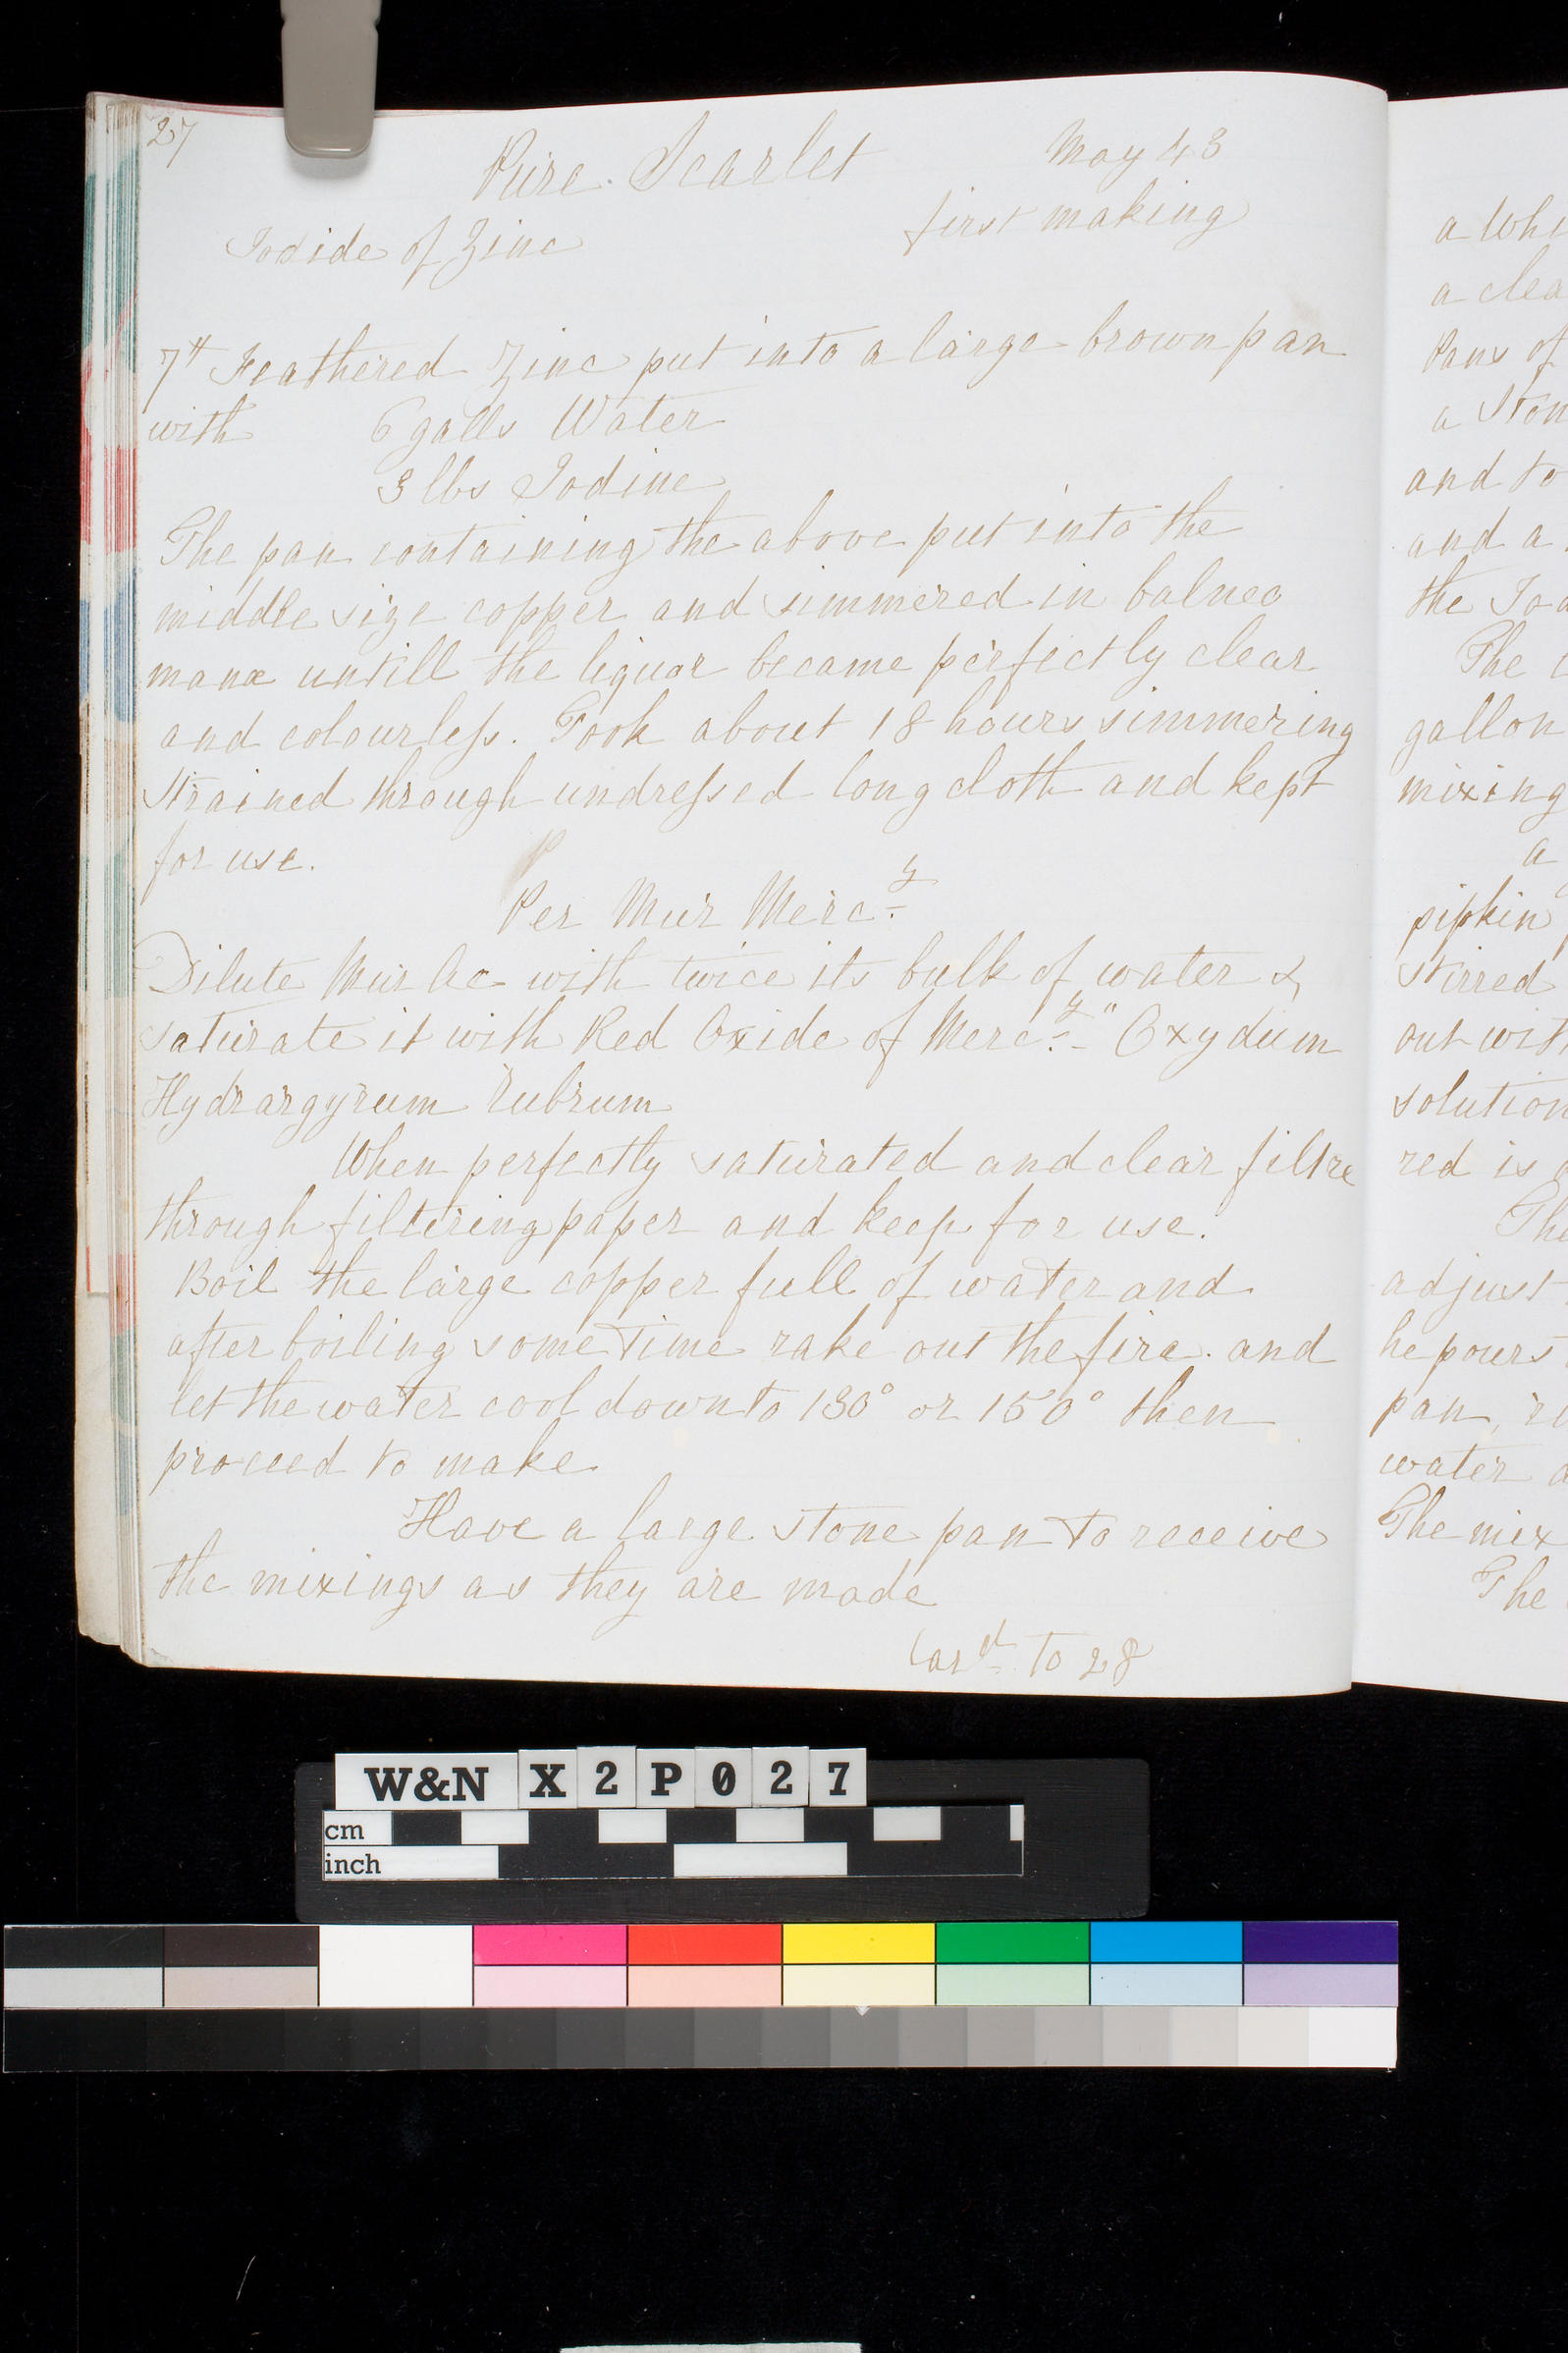 27
Pure Scarlet May 43
first making
Iodide of Zinc
7# Feathered Zinc put into a large brown pan
with 6 galls Water
3 lbs Iodine
The pan containing the above put into the
middle size copper and simmered in balneo
manæ untill the liquor became perfectly clear
and colourless. Took about 18 hours simmering
strained through undressed long cloth and kept
for use.
Per Mur Merc.y
Dilute Mur Ac with twice its bulk of water &
saturate it with Red Oxide of Merc.y- "Oxydum
Hydrargyrum rubrum
When perfectly saturated and clear filtre
through filtering paper and keep for use.
Boil the large copper full of water and
after boiling some time rake out the fire. and
let the water cool down to 130° or 150° then
proceed to make
Have a large stone pan to receive
the mixings as they are made
Card to 28
a clea
Pans of
a Ston
and to
and a
The
gallon
mixing
a
pipkin
stirred
out with
solution
red is
The
adjust
he pours
pan,
water a
The mix
The
W&N X2P027
cm
inch